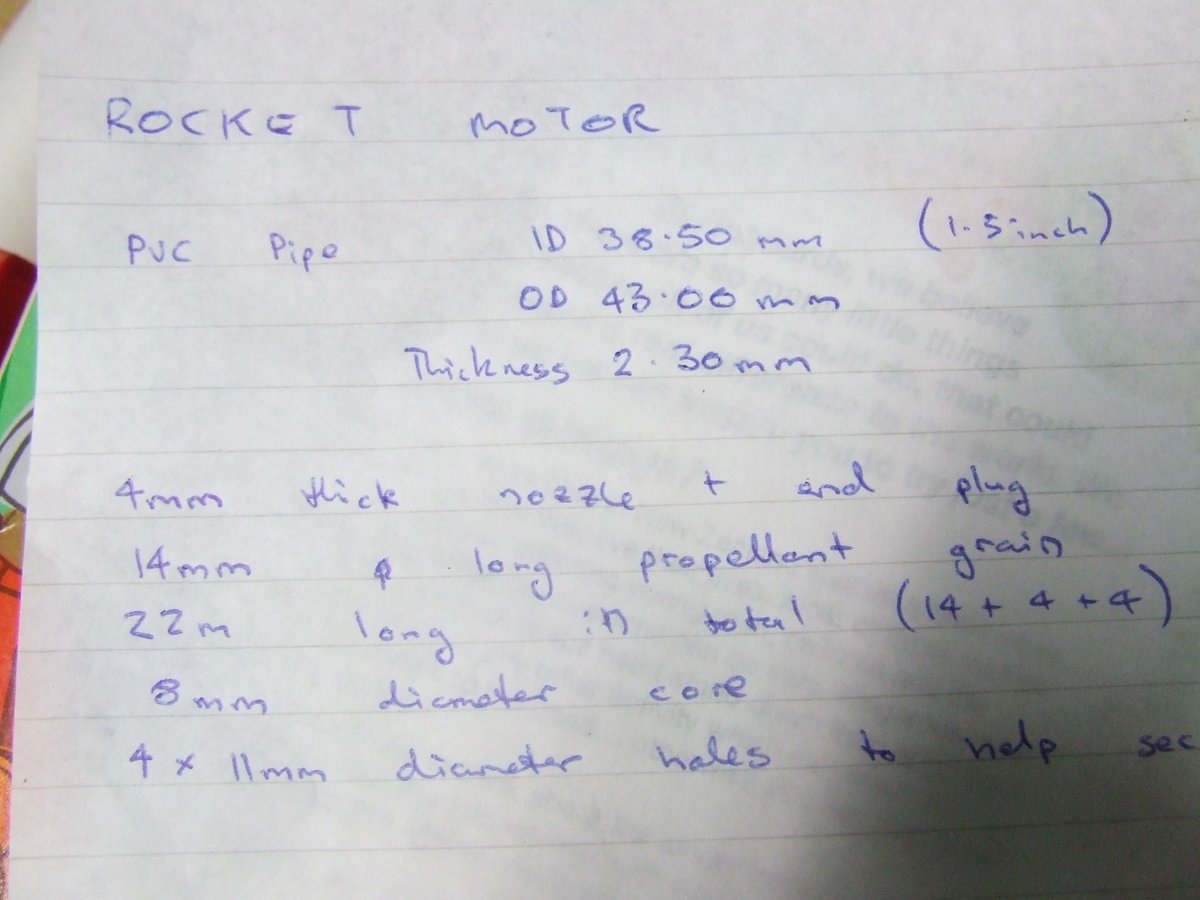 ROCKET MOTOR
PVC Pipe ID 38.50 mm (1.5 inch)
OD 43.00 mm
Thickness 2.30 mm
4mm thick nozzle + end plug
14mm long propellant grain
22m long in total (14 + 4 + 4)
8mm diameter core
4 x 11mm diameter holes to help sec